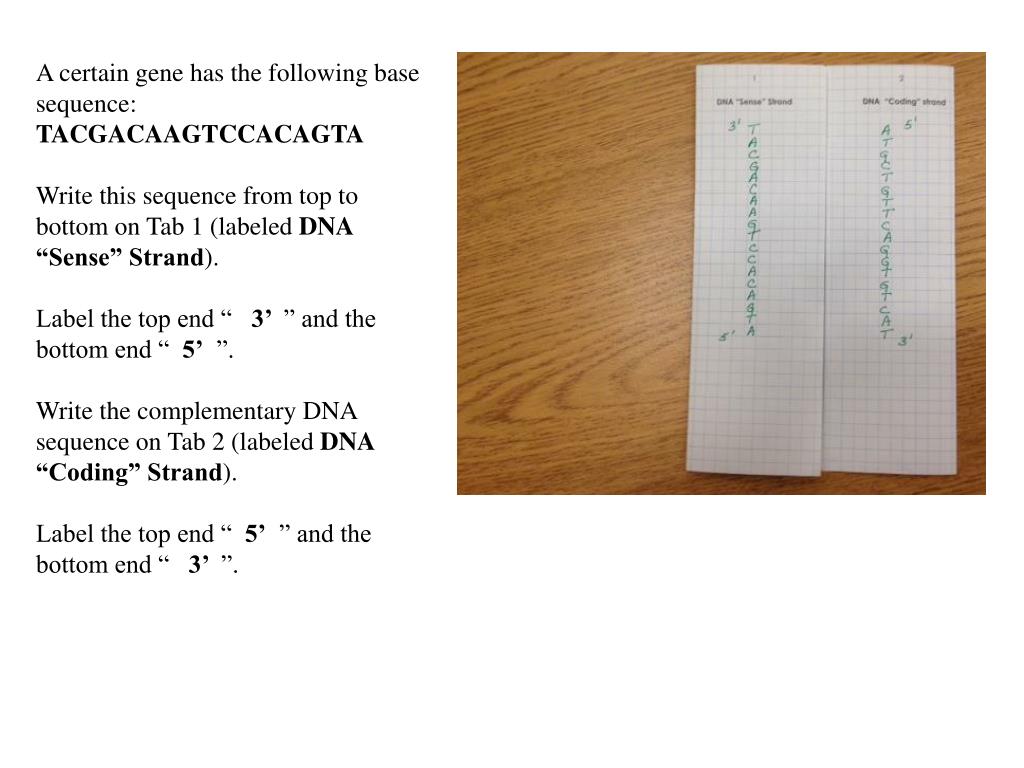 A certain gene has the following base
sequence:
TACGACAAGTCCACAGTA
Write this sequence from top to
bottom on Tab 1 (labeled DNA
“Sense” Strand).
Label the top end “   3’  ” and the
bottom end “  5’  ”.
Write the complementary DNA
sequence on Tab 2 (labeled DNA
“Coding” Strand).
Label the top end “  5’  ” and the
bottom end “   3’  ”.
1
DNA "Sense" Strand
3'
T
A
C
G
A
C
A
A
G
T
C
C
A
C
A
G
T
A
5'
2
DNA "Coding" strand
5'
A
T
G
C
T
G
T
T
C
A
G
G
T
G
T
C
A
T
3'